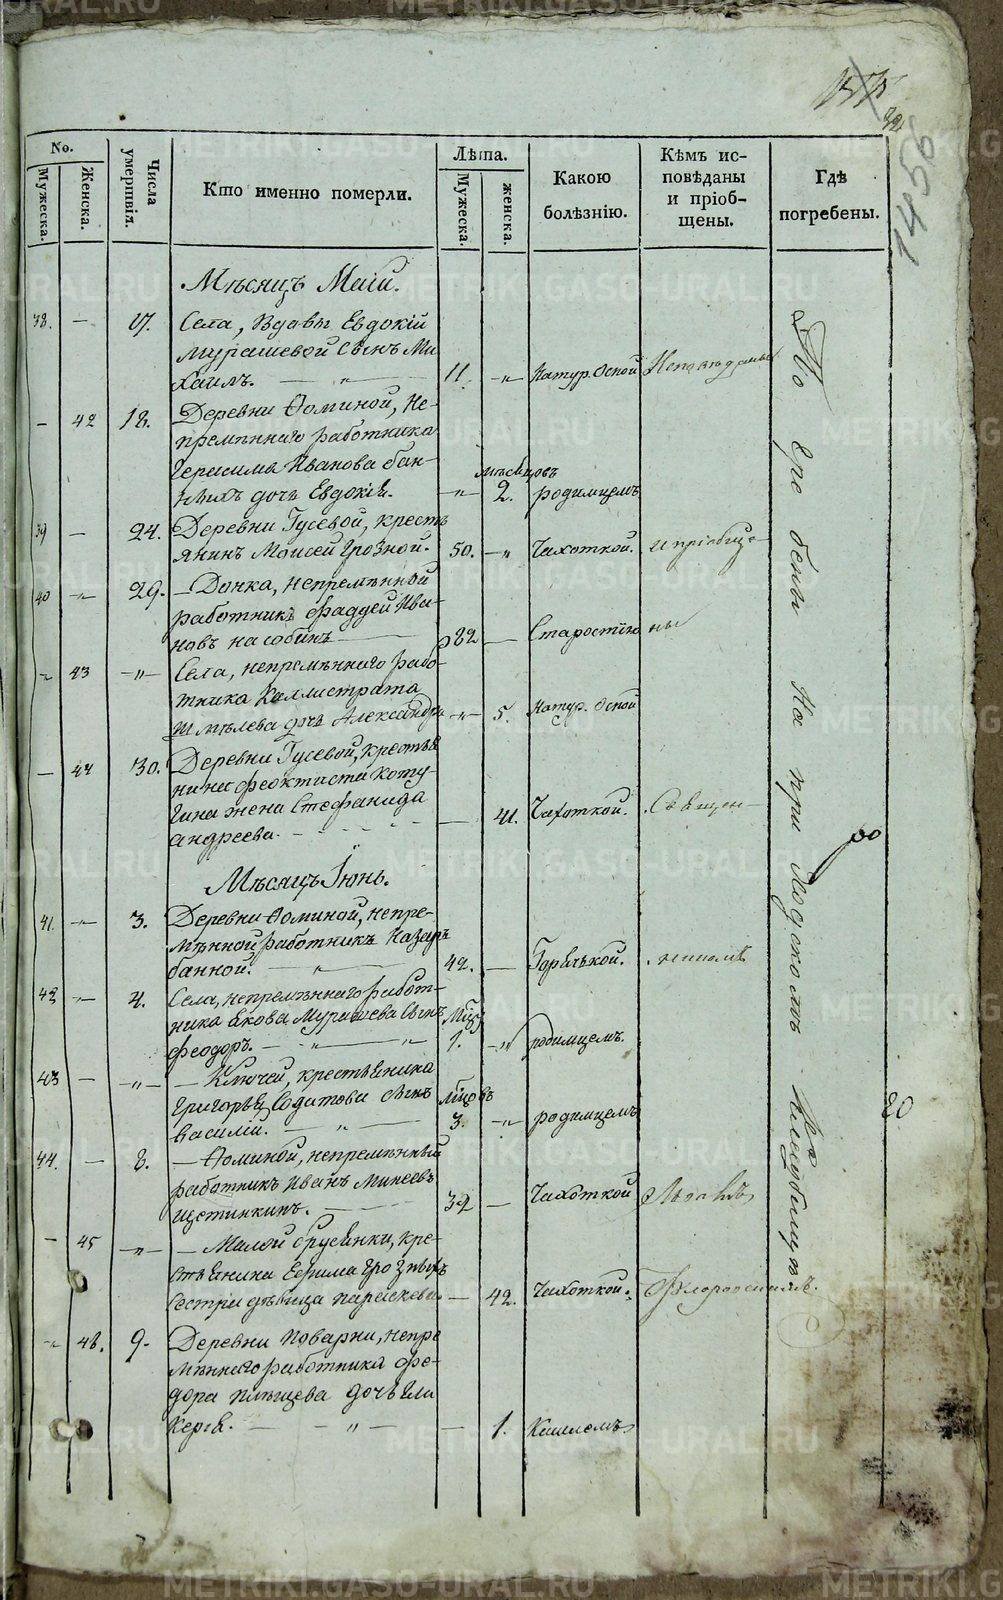 No.
Мужеска.
Женска.
Числа умершвія.
Кто именно померли.
Лѣта.
Мужеска.
женска.
Какою болѣзнію.
Кѣмъ исповѣданы и пріобщены.
Гдѣ погребены.
14 56
Мѣсяцъ Маій.
38. — 17. Села, Вдовы Евдокій
Мурашевой сынъ Ми
хаилъ. — " — 11. — " Натур. оспой
— 42 18. Деревни Ѳоминой, не-
премѣннаго работника
Герасима Иванова Бан-
ныхъ дочь Евдокія. — " — мѣсяцовъ 2. родимцемъ
39 — 24. Деревни Гусевой, кресть
янинъ Моисей Грозной. 50. — " Чахоткой. и пріобще-
40 — " 29. — Донка, непремѣнной
работникъ Фаддей Ива
новъ 82 — Старостію ны
— " 43 — " — Села, непремѣннаго рабо-
тника Каллистрата
Шмѣлева дочь Александра — " — 5. Натур. оспой
— 44 30. Деревни Гусевой, крестья
нина Феоктиста Коту-
гина жена Стефанида
Андреева. — 41. Чахоткой. Священ-
Мѣсяцъ Іюнь.
41. — " 3. Деревни Ѳоминой, непре-
мѣнной работникъ Назаръ
Банной. — " — 42. — Горячькой.
42 — " 4. Села, непремѣннаго работ-
ника Якова Мурашева сынъ
Феодоръ. — " — " 1. — " родимцемъ.
43 — — " — — Ключей, крестьянина
Григорья Содатова сынъ
Василій. — " — 3. — " родимцемъ
44. — 8. — Ѳоминой, непремѣнный
работникъ Иванъ Минеевъ
Щетинкинъ. — 39 — Чахоткой
— 45 — " — — Малой Брусянки, кре-
стьянина Ефима Грозныхъ
сестра дѣвица Параскева. — 42. Чахоткой.
— " 46. 9. Деревни Поварни, непре
мѣннаго работника Фе-
дора Пльщева дочь Гли
керія. — " — 1. Кашлемъ
На при
20
METRIKI.GASO-URAL.RU